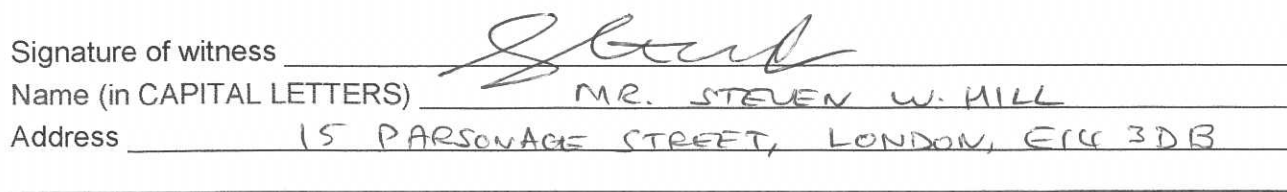 Signature of witness
Name (in CAPITAL LETTERS) MR. STEVEN W. HILL
Address 15 PARSONAGE STREET, LONDON, E14 3DB